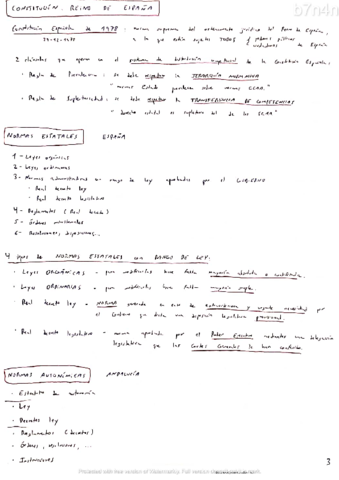 b7n4n
CONSTITUCIÓN: REINO DE ESPAÑA
Constitución Española de 1978: norma suprema del ordenamiento jurídico del Reino de España,
a la que están sujetos TODOS poderes públicos
ciudadanos de España
2 cláusulas que operan en el de distribución competencial de la Constitución Española:
Regla de Prevalencia: se debe respetar la JERARQUÍA NORMATIVA
"normas Estado prevalecen sobre normas CCAA."
Regla de Supletoriedad: se debe respetar la TRANSFERENCIA DE COMPETENCIAS
"derecho estatal es supletorio del de las CCAA"
NORMAS ESTATALES ESPAÑA
1 - Leyes orgánicas
2 - Leyes ordinarias
3 - Normas rango de ley aprobadas por el GOBIERNO
- Real decreto ley
- Real decreto legislativo
4 - Reglamentos (Real decreto)
5 - Órdenes ministeriales
6 - Resoluciones,
4 tipos de NORMAS ESTATALES con RANGO DE LEY:
- Leyes ORGÁNICAS - para modificarlas hace falta mayoría absoluta o cualificada.
- Leyes ORDINARIAS - para modificarlas hace falta mayoría simple.
- Real decreto ley - NORMA en caso de extraordinaria y urgente necesidad por
el Gobierno que dicta una disposición legislativa provisional.
- Real decreto legislativo - norma aprobada por el Poder Ejecutivo mediante una delegación
legislativa que las Cortes Generales le han conferido.
NORMAS AUTONÓMICAS ANDALUCÍA
- Estatuto de autonomía
- Ley
- Decretos ley
- Reglamentos (decretos)
- Órdenes, resoluciones, ...
- Instrucciones
3